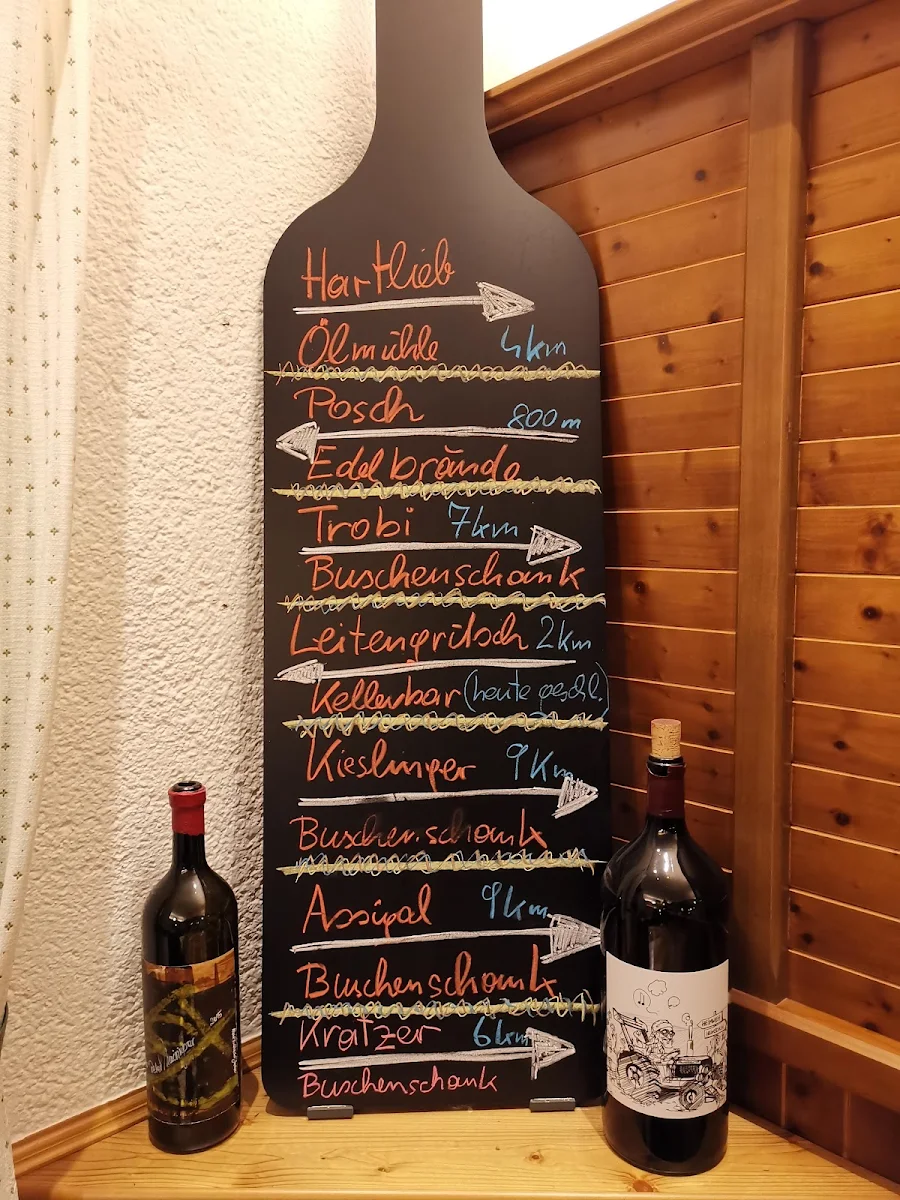 Hartlieb
Ölmühle 4km
Posch 800m
Edelbrände
Trobi 7km
Buschenschank
Leitengritsch 2km
Kellerbar (heute geschl.)
Kieslinger 9Km
Buschenschank
Assigal 9km
Buschenschank
Kratzer 6km
Buschenschank